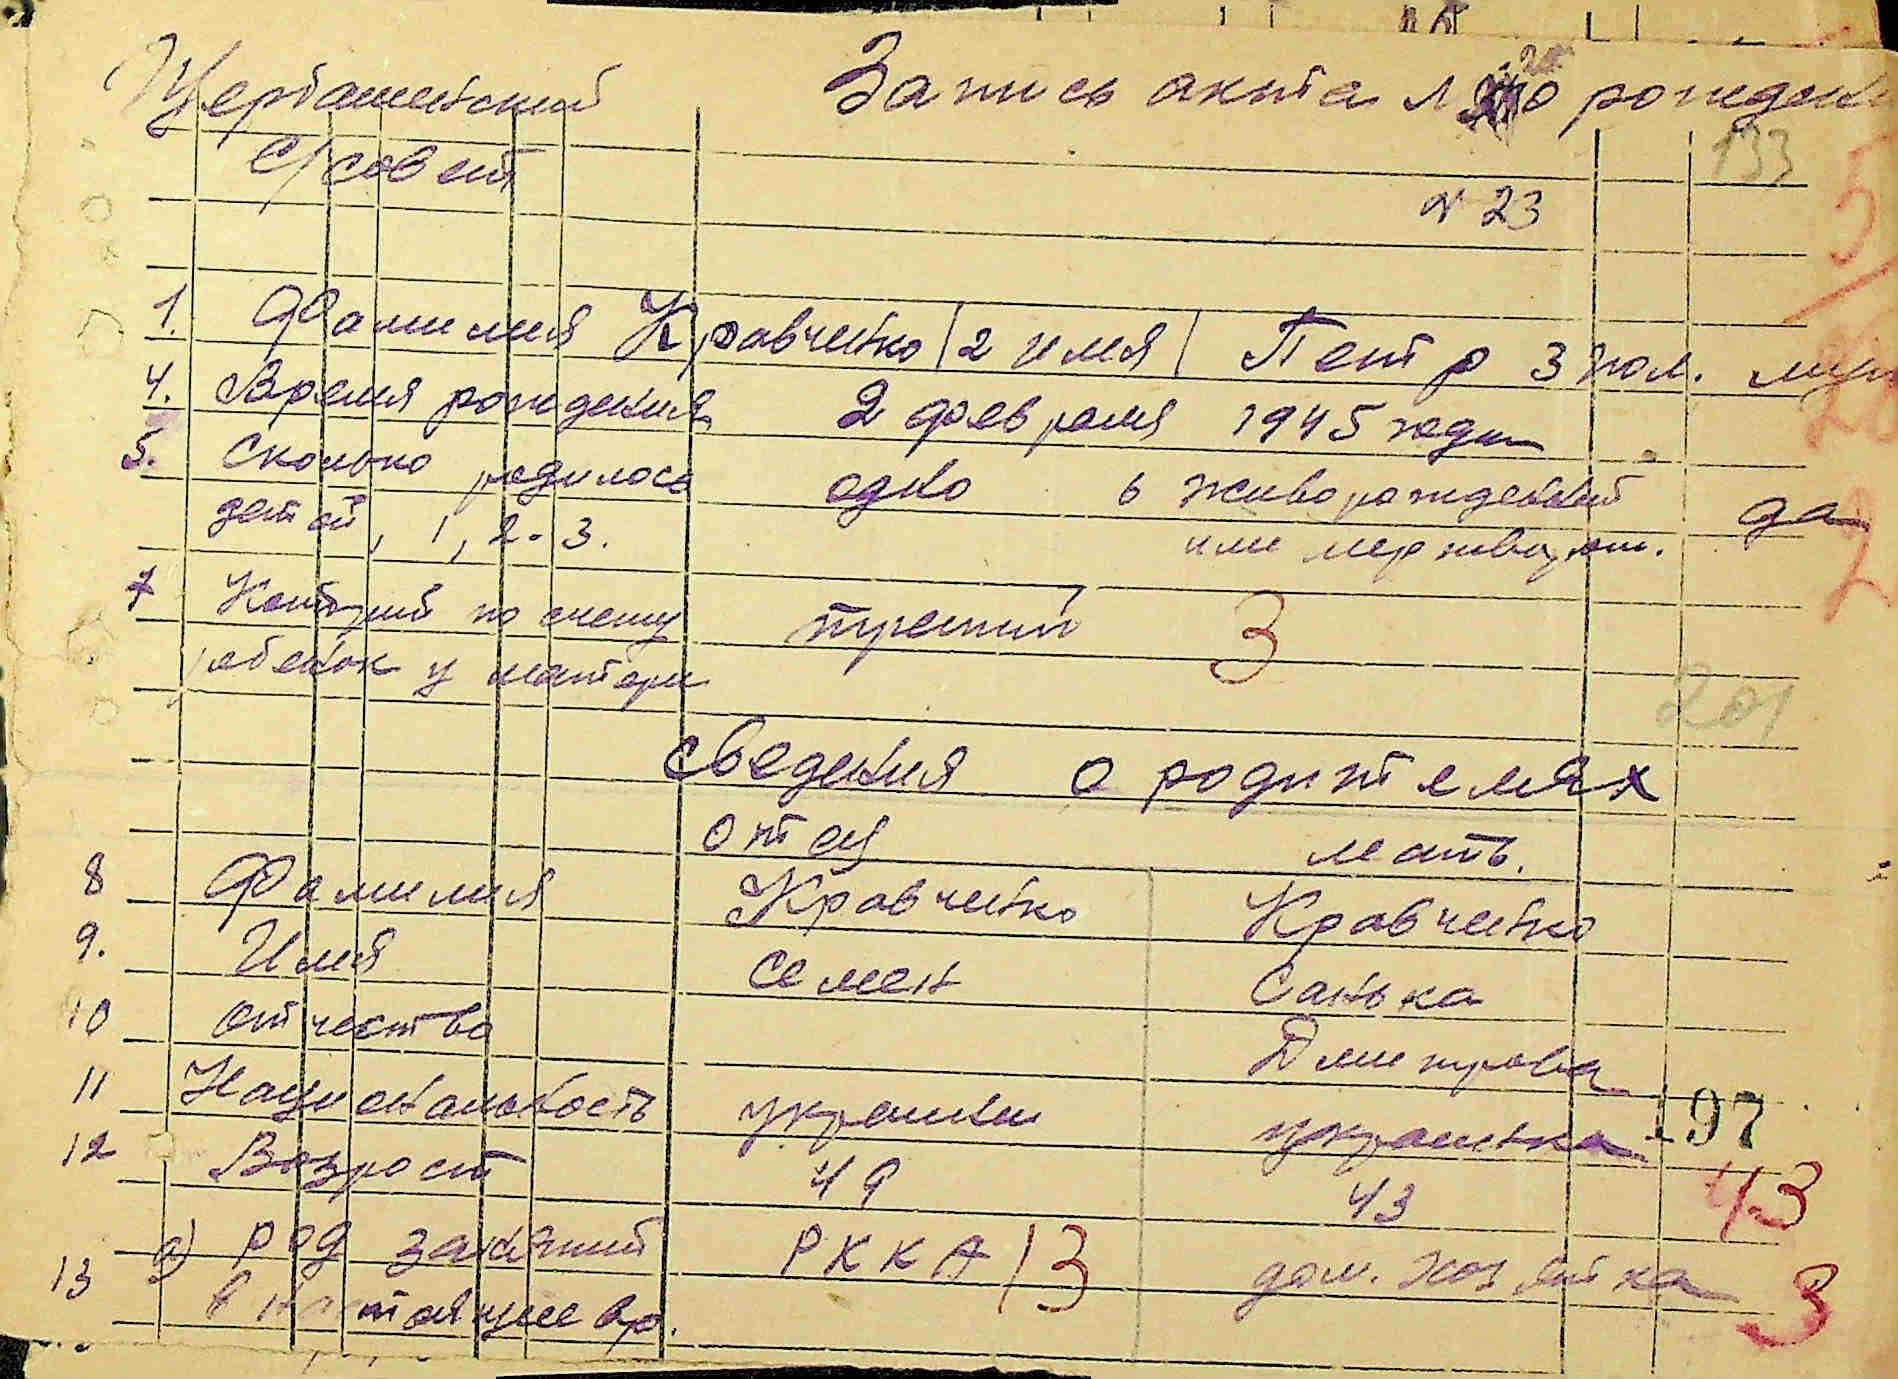 Щербашенский Запись акта о рожден
с/совет 133
№ 23
1. Фамилия Кравченко 2 имя Петр 3 пол. муж
4. Время рождения 2 февраля 1945 года
5. Сколько родилось одно 6 живорожденный да
детей, 1, 2-3. или мертворож.
7 Который по счету третий 3
ребенок у матери
201
сведения о родителях
отец мать.
8 Фамилия Кравченко Кравченко
9. Имя Семен Санька
10 отчество Дмитрова
11 Национальность украин украинка 197
12 Возраст 49 43 43
13 а) род занятий РККА 13 дом. хозяйка 3
в настоящее вр.